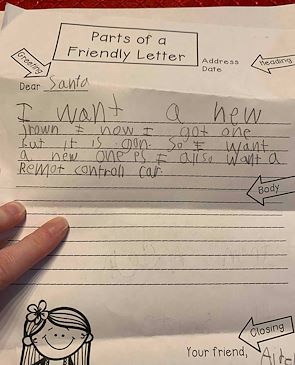 Parts of a
Friendly Letter
Greeting
Address
Date
Heading
Dear Santa
I want a new
Drown I now I got one
but it is So I want
a new one PS I allso want a
Remot controll car
Body
Closing
Your friend,